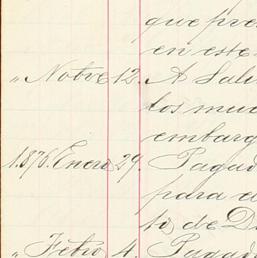 que pre
en este
„ Novre 12. A Salv
tos muc
embarg
1.876. Enero 29. Pagad
para e
to de D
„ Febro 4. Pagad